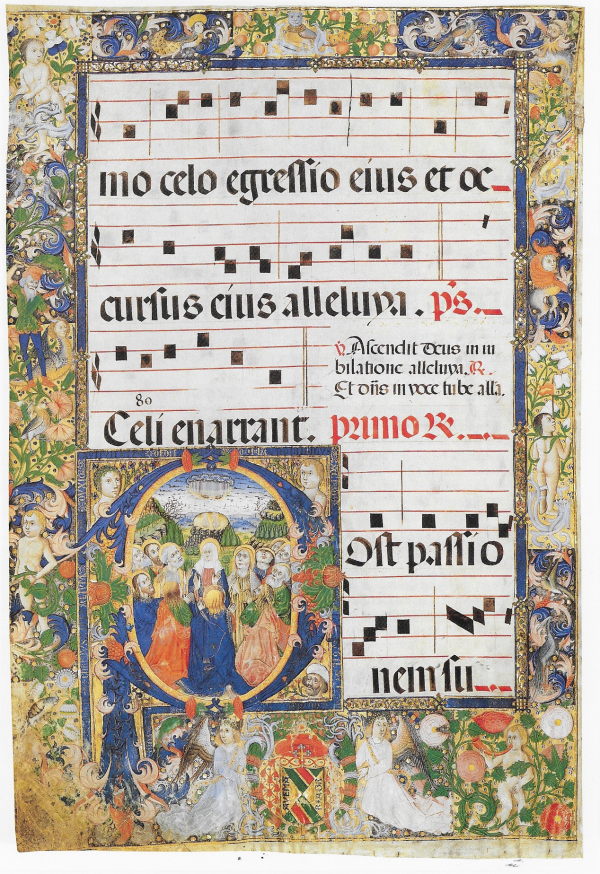 mo celo egressio eius et oc
cursus eius alleluya . p͞s.
℣ Ascendit deus in iu
bilatione alleluya. R.
Et dn̄s in voce tube alla.
80
Celi enarrant. primo R̃.
Ost passio
nem su